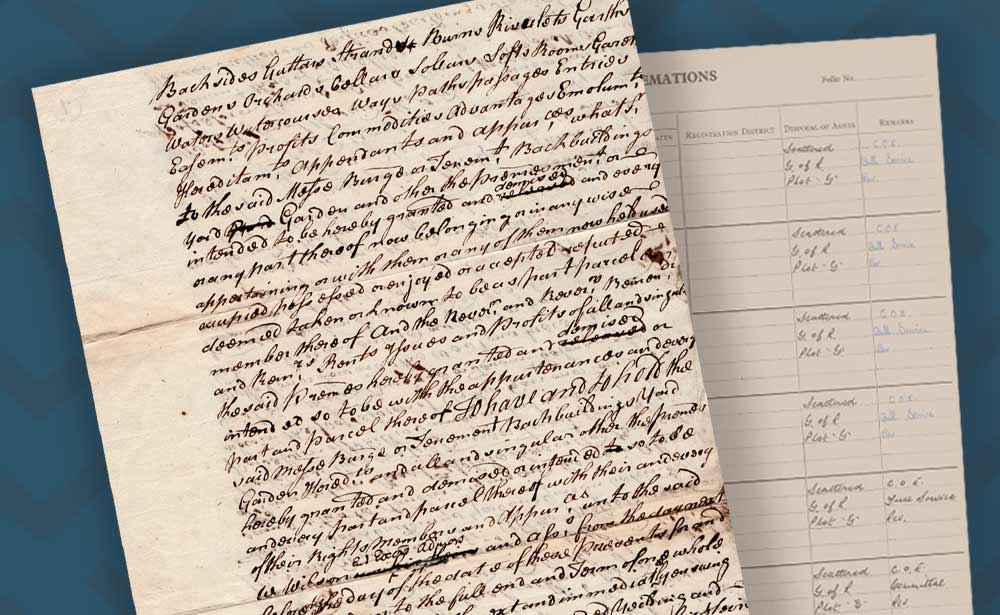 Backsides Guttars Strands Burns Rivulets
Gardens Orchards Cellars Sollars Lofts Rooms
Waters Watercourses Ways Paths Passages Entries
Easemts. Profits Commodities Advantages Emolumts.
Hereditamts. Appendants and Appurces whatsr.
to the said Messe Burge or Tenemt. Backbuildings
Yard Garden and other the premes meant or
intended to be hereby granted and demised and every
or any part thereof now belonging or in any wise
appertaining or with them or any of them now held used
occupied possessed or enjoyed or accepted reputed
deemed taken or known to be as part parcel or
member thereof And the Rever. and Revers. Remr.
and Remrs. Rents Issues and Profits of all and singular
the said Premes hereby granted and demised or
intend so to be with the appurtenances and every
part and parcel thereof To have and to hold the
said Messe Burge or Tenement Backbuildings Yard
Garden Heredts. and all and singular other the premes
hereby granted and demised or intended so to be
and every part and parcel thereof with their and every
of their Rights members and Appurs. unto the said
W Wilson as and Asss. from the day next
before the day of the date of these presents for and
to the full end and Term of one whole
and immediately ensuing
EMATIONS
Folio No.
REGISTRATION DISTRICT
DISPOSAL OF ASHES
REMARKS
Scattered C.O.E.
G. of R Full Service
Plot - G Rev.
Scattered C.O.E.
G. of R Full Service
Plot - G Rev.
Scattered C.O.E.
G. of R Full Service
Plot - G Rev.
Scattered C.O.E.
G. of R Full Service
Plot - G Rev.
Scattered C.O.E.
G. of R Full Service
Plot - G Rev.
Scattered C.O.E.
G. of R Committal
Plot - E Rev.